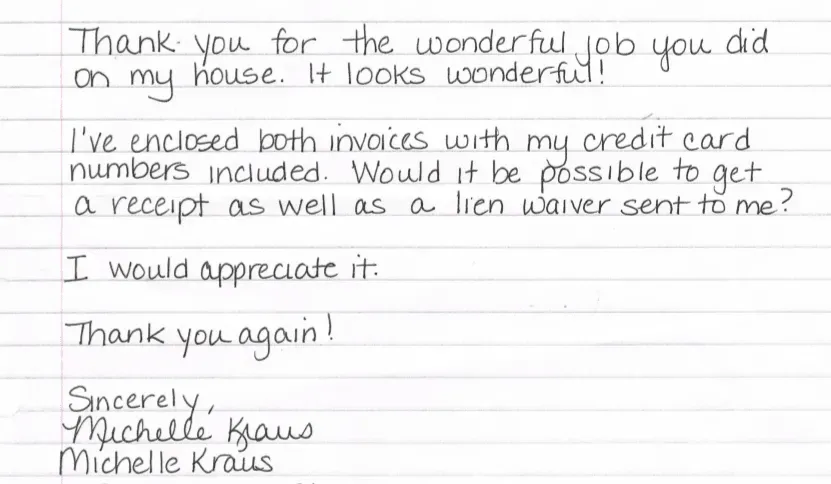 Thank you for the wonderful job you did
on my house. It looks wonderful!
I've enclosed both invoices with my credit card
numbers included. Would it be possible to get
a receipt as well as a lien waiver sent to me?
I would appreciate it.
Thank you again!
Sincerely,
Michelle Kraus
Michelle Kraus